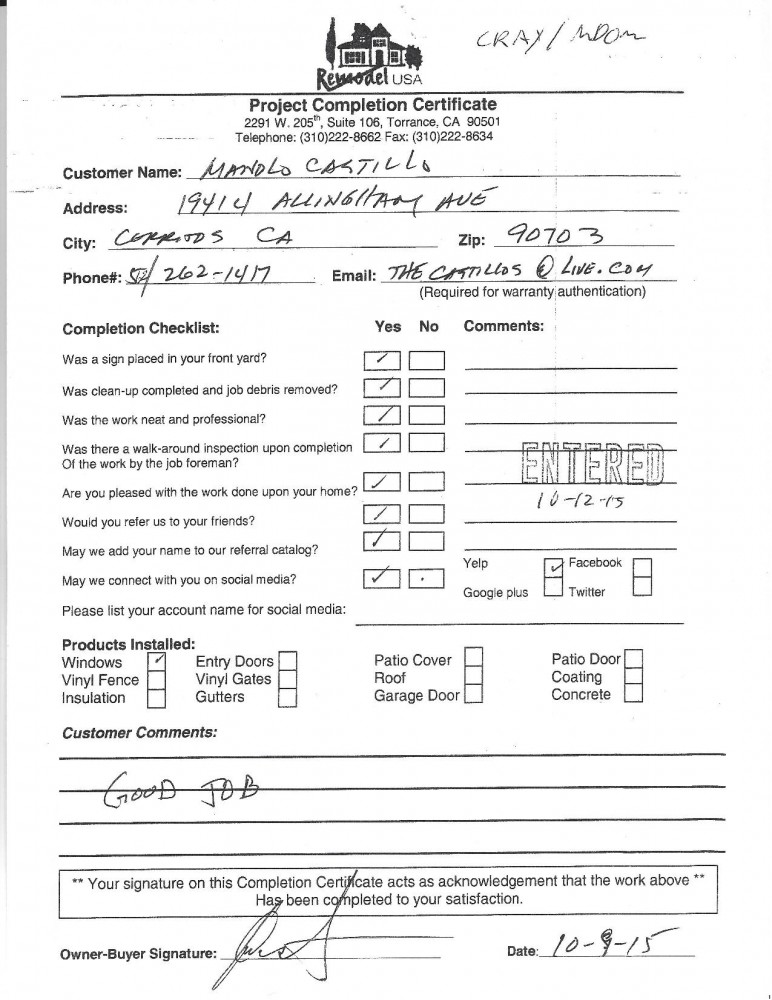 CRAY/
Remodel USA
Project Completion Certificate
2291 W. 205th, Suite 106, Torrance, CA 90501
Telephone: (310)222-8662 Fax: (310)222-8634
Customer Name: MANOLO CASTILLO
Address: 19414 ALLINGHAM AVE
City: CERRITOS CA Zip: 90703
Phone#: 562/262-1417 Email: THE CASTILLOS @ LIVE.COM
(Required for warranty authentication)
Completion Checklist: Yes No Comments:
Was a sign placed in your front yard?
Was clean-up completed and job debris removed?
Was the work neat and professional?
Was there a walk-around inspection upon completion
Of the work by the job foreman?
ENTERED
Are you pleased with the work done upon your home?
10-12-15
Would you refer us to your friends?
May we add your name to our referral catalog?
Yelp Facebook
May we connect with you on social media?
Google plus Twitter
Please list your account name for social media:
Products Installed:
Windows Entry Doors Patio Cover Patio Door
Vinyl Fence Vinyl Gates Roof Coating
Insulation Gutters Garage Door Concrete
Customer Comments:
GOOD JOB
** Your signature on this Completion Certificate acts as acknowledgement that the work above **
Has been completed to your satisfaction.
Owner-Buyer Signature: Date: 10-9-15